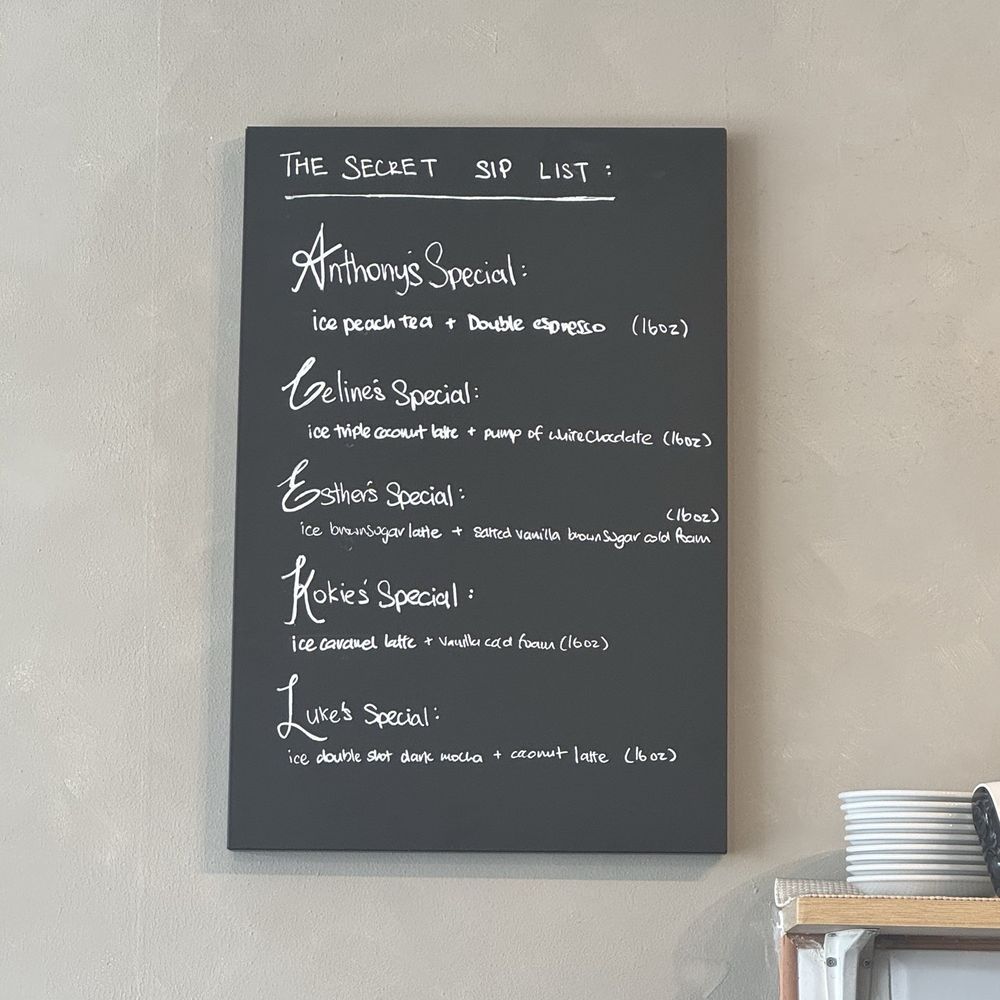 THE SECRET SIP LIST :
Anthony's Special:
ice peach tea + Double espresso (16oz)
Celine's Special:
ice triple coconut latte + pump of white chocolate (16oz)
Esther's Special:
(16oz)
ice brownsugar latte + salted vanilla brown sugar cold foam
Kokie's Special:
ice caramel latte + vanilla cold foam (16oz)
Luke's Special:
ice double shot dark mocha + coconut latte (16oz)